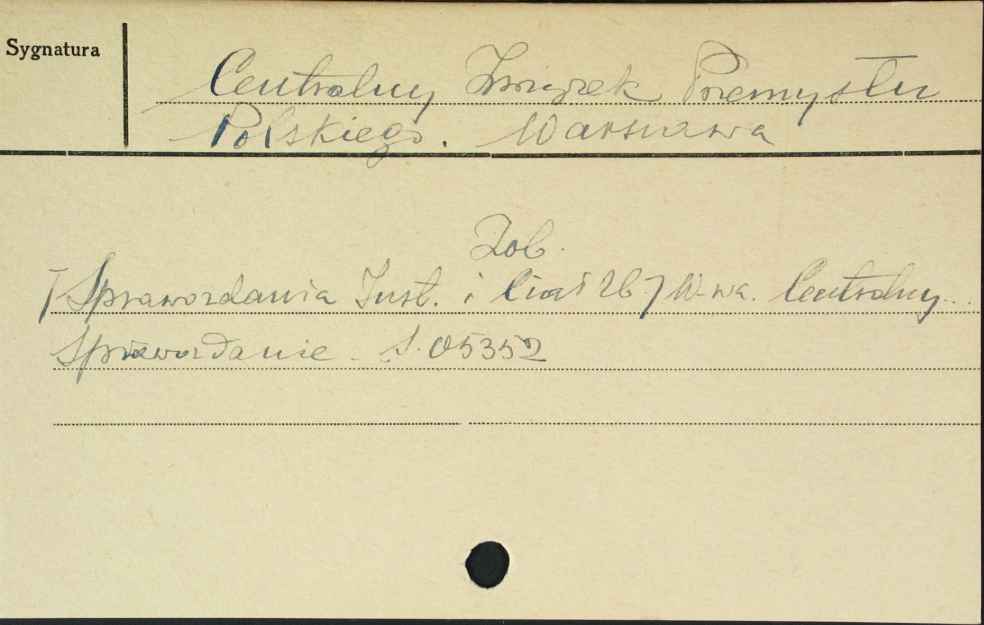 Sygnatura
Centralny Związek Przemysłu
Polskiego. Warszawa
Zob.
[Sprawozdania Inst. i Ciał 26] W-wa. Centralny
Sprawozdanie - S. 05352